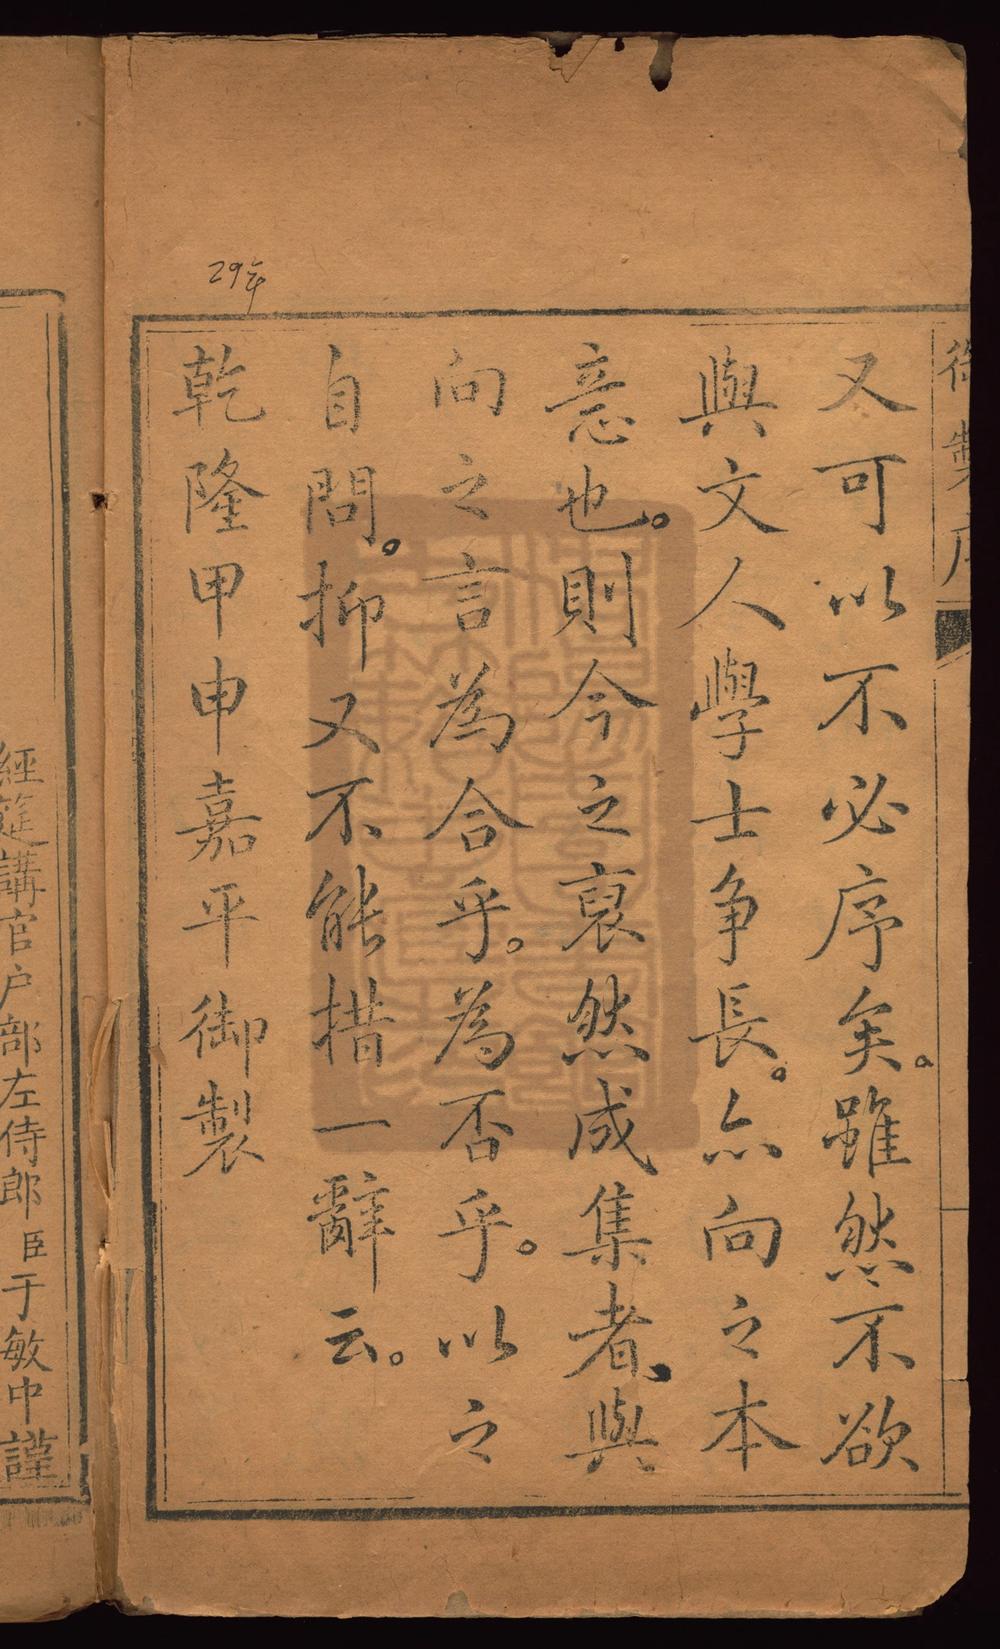 御製序
又可以不必序矣。雖然不欲
與文人學士争長。亦向之本
意也。則今之裒然成集者、與
向之言為合乎。為否乎。以之
自問。抑又不能措一辭云。
乾隆甲申嘉平御製
29年
經筵講官户部左侍郎臣于敏中謹